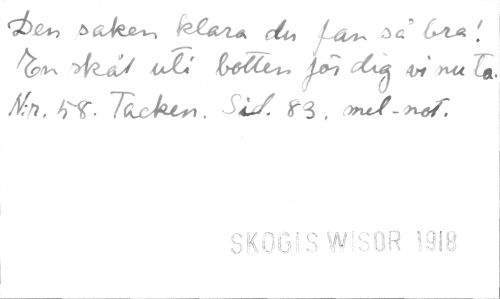 Den saken klara du fan så bra!
En skål uti botten för dig vi nu ta.
N:r. 58. Tacken. Sid. 83. mel-not.
SKOGIS WISOR 1918